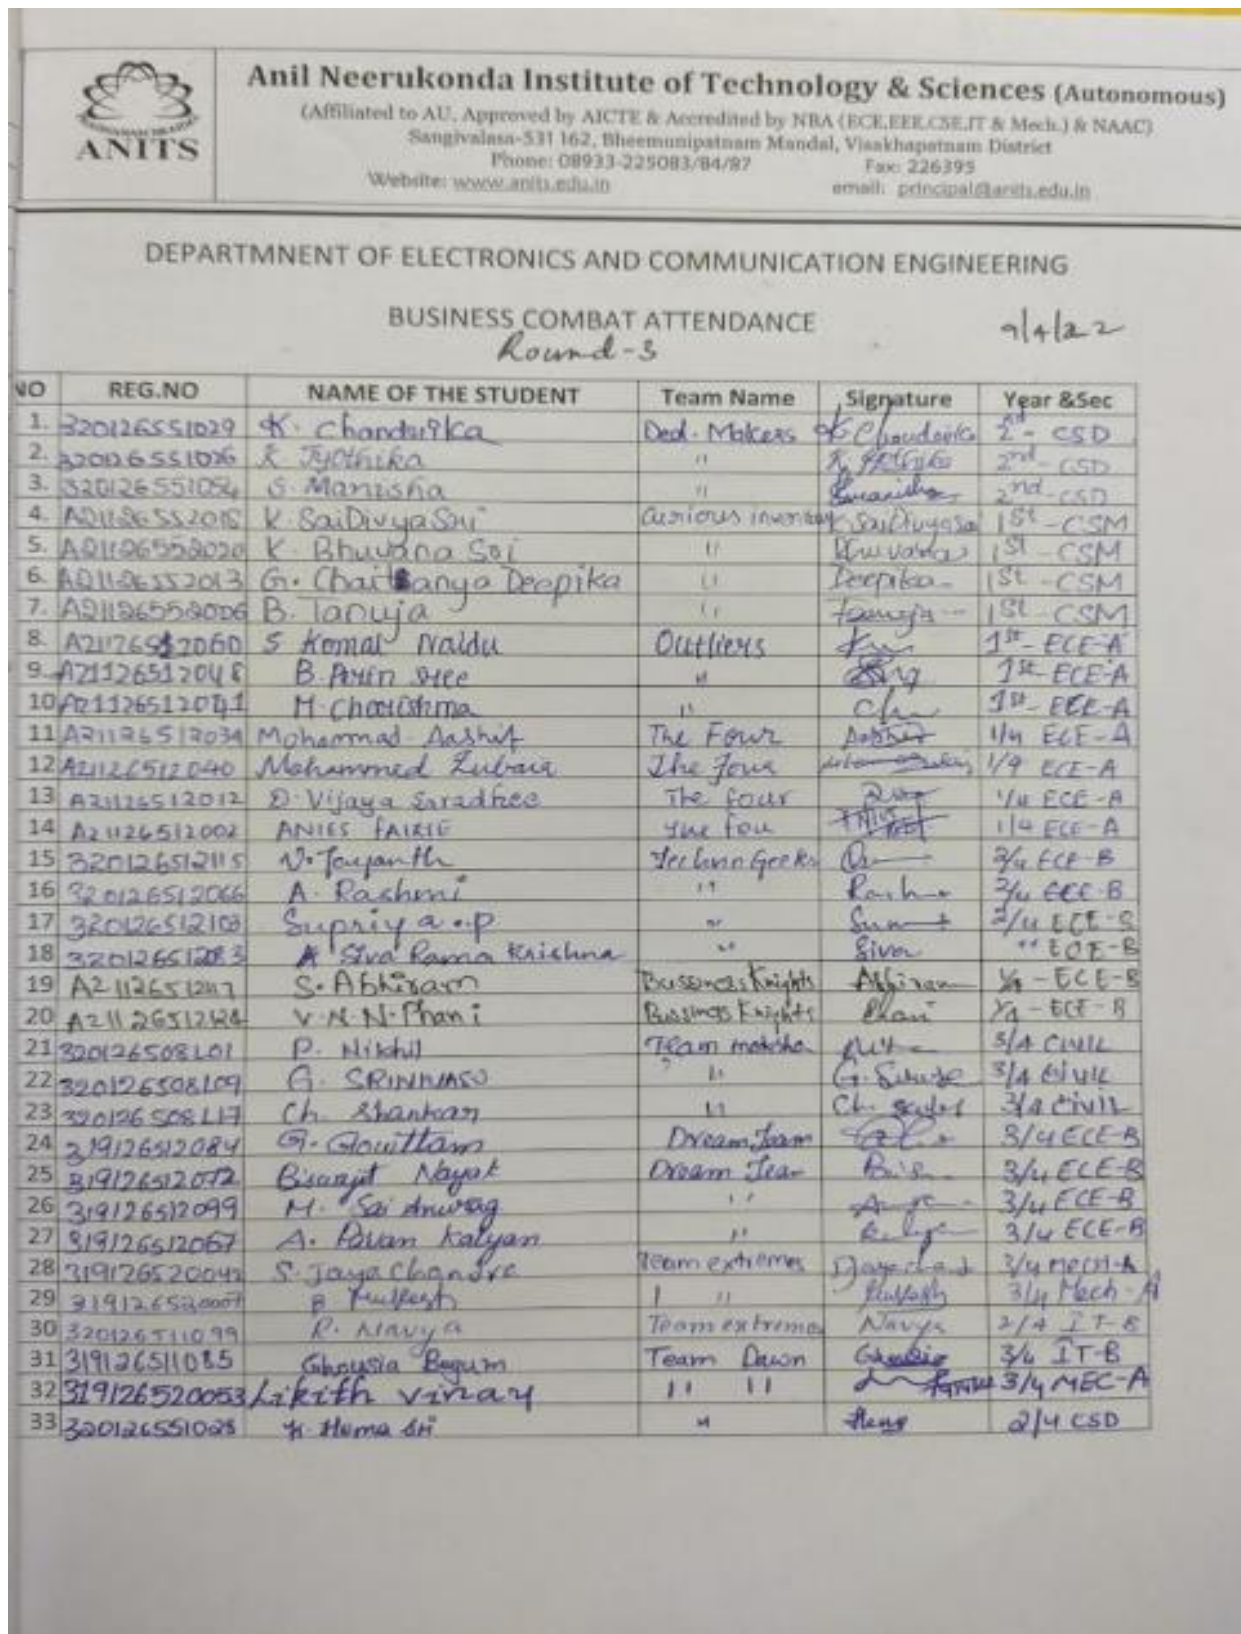 ANITS
Anil Neerukonda Institute of Technology & Sciences (Autonomous)
(Affiliated to AU, Approved by AICTE & Accredited by NBA (ECE,EEE,CSE,IT & Mech.) & NAAC)
Sangivalasa-531 162, Bheemunipatnam Mandal, Visakhapatnam District
Phone: 08933-225083/84/87 Fax: 226395
Website: www.anits.edu.in email: principal@anits.edu.in
DEPARTMNENT OF ELECTRONICS AND COMMUNICATION ENGINEERING
BUSINESS COMBAT ATTENDANCE 9/4/22
Round-3
NO REG.NO NAME OF THE STUDENT Team Name Signature Year &Sec
1. 320126551029 K. Chandrika Deal. Makers 2nd - CSD
2. 320126551026 K Jyothika " 2nd - CSD
3. S. Manisha " 2nd - CSD
4. A21126552015 K. SaiDivyaSri Curious K SaiDivyasri 1st - CSM
5. A21126552020 K. Bhuvana Sri " Bhuvana 1st - CSM
6. A21126552013 G. Chaitanya Deepika " Deepika 1st - CSM
7. A21126552006 B. Tanuja " Tanuja 1st - CSM
8. A21126512060 S Komal Naidu Outliers 1st - ECE-A
9. A21126512048 B. " 1st - ECE-A
10 M. Charishma " 1st - ECE-A
11 A21126512034 Mohammad Aashif The Four Aashif 1/4 ECE-A
12 A21126512040 Mohammed Zubair The Four ECE-A
13 A21126512012 D. Vijaya Saradhee The four 1/4 ECE-A
14 A21126512002 ANIES FAIRIE The Fou 1/4 ECE-A
15 320126512115 V. Jayanth Techno Geeks 2/4 ECE-B
16 320126512066 A. Rashmi " 2/4 ECE-B
17 320126512103 Supriya.P " 2/4 ECE-B
18 A Siva Rama Krishna " Siva " ECE-B
19 A21126512117 S. Abhiram Bussiness Knights Abhiram 1/4 - ECE-B
20 V.N.N. Phani Knights Phani 1/4 - ECE-B
21 320126508L01 P. Nikhil Team moksha 3/4 CIVIL
22 320126508L09 G. SRINIVASU " 3/4 CIVIL
23 320126508L17 Ch. Shankar " 3/4 CIVIL
24 319126512084 G. Gowttam Dream Team 3/4 ECE-B
25 319126512072 Biswajit Nayak Dream Team 3/4 ECE-B
26 319126512099 M. Sai Anurag " 3/4 ECE-B
27 319126512067 A. Pavan Kalyan " 3/4 ECE-B
28 319126520042 S. Jaya Chandra Team extremes 3/4 Mech-A
29 319126520007 B " 3/4 Mech-A
30 320126511099 R. Navya Team extremes Navya 2/4 IT-B
31 319126511085 Ghousia Begum Team Dawn 3/4 IT-B
32 319126520053 Likith vinay " " 3/4 MEC-A
33 320126551028 K. Hema Sri " 2/4 CSD